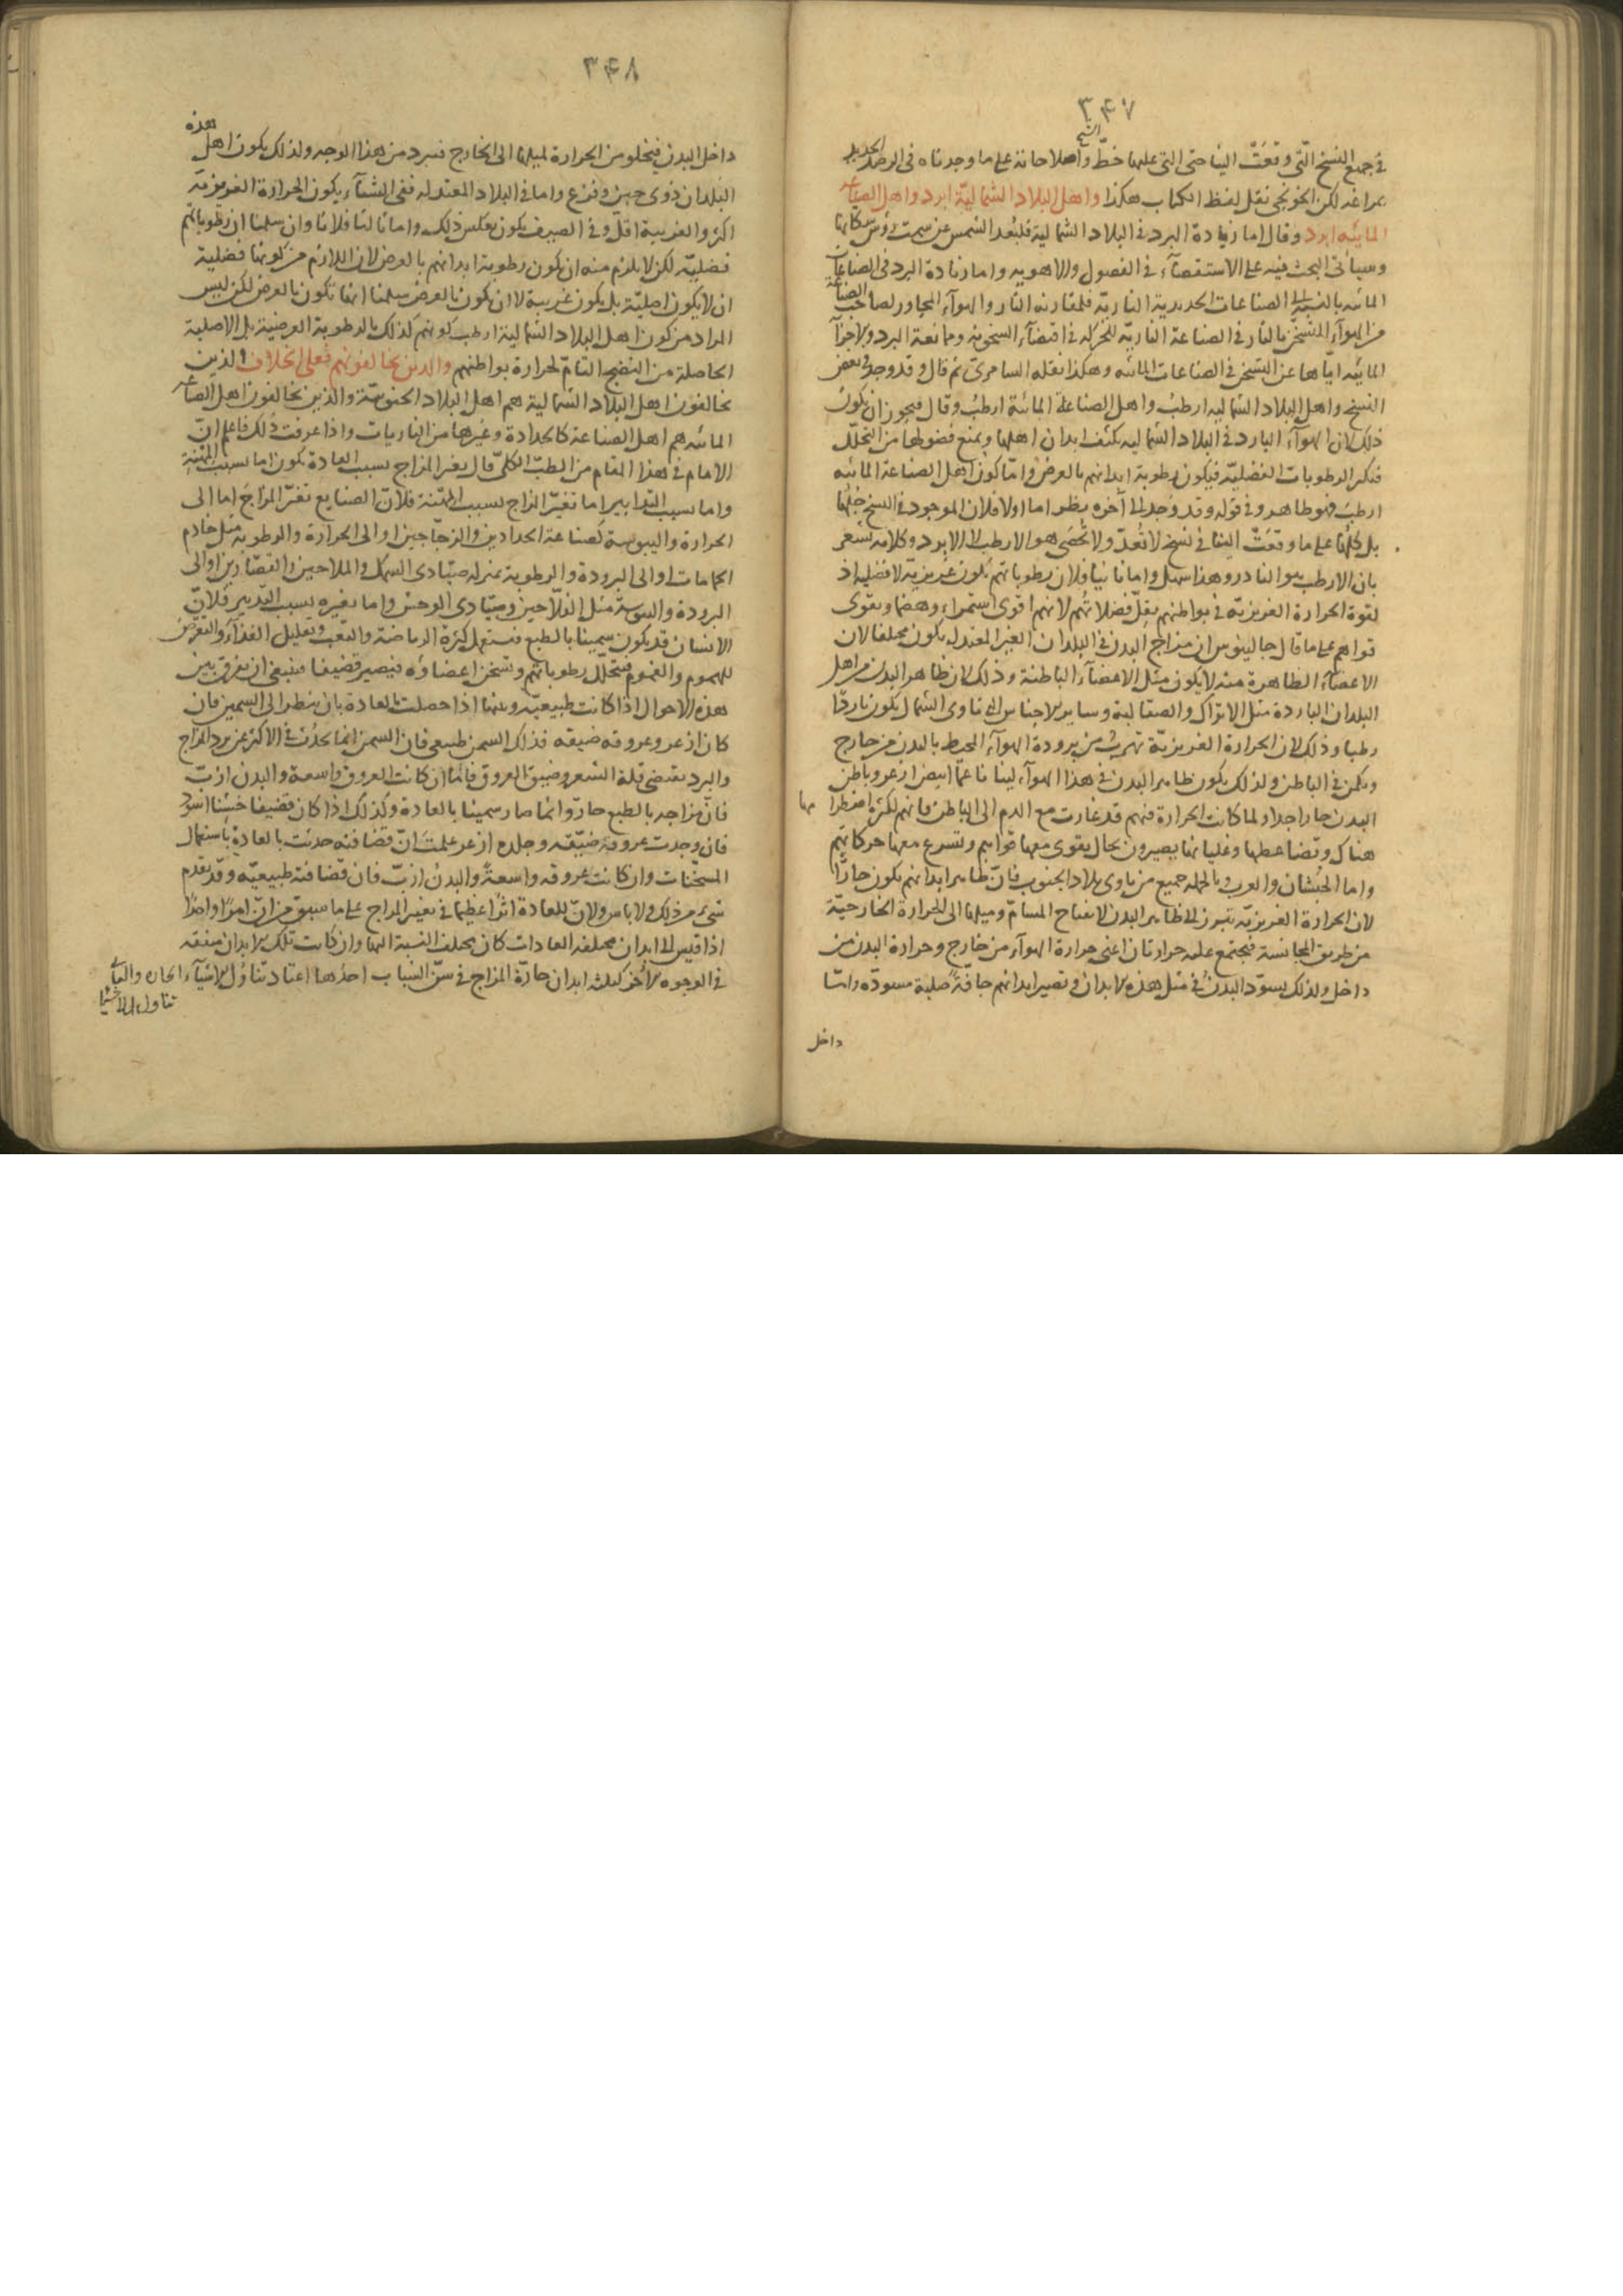 ۳۴۷
فى جميع النسخ التى وقعت الينا حتى التى عليها خط الشيخ واصلاحاته على ما وجدناه فى الرصد الجديد
بمراغه لكن الخونجى نقل لفظ الكتاب هكذا واهل البلاد الشمالية ابرد واهل الصناعة
المائيه ابرد وقال اما زيادة البرد فى البلاد الشمالية فلبعد الشمس عن سمت رؤس سكانها
وسيأتى البحث فيه على الاستقصاء فى الفصول والاهويه واما زيادة البرد فى الصناعات
المائيه بالنسبة الى الصناعات الحديدية النارية فلمقارنه النار والهواء المجاور لصاحب الصناعة
من الهواء المتسخن بالنار فى الصناعة النارية للحركه فى اقتضاء السخونة وممانعة البرد والاجزاء
المائيه اياها عن التسخن فى الصناعات المائيه وهكذا نقله السامرى ثم قال وقد وجد فى بعض
النسخ واهل البلاد الشماليه ارطب واهل الصناعة المائية ارطب وقال فيجوز ان يكون
ذلك لان الهواء البارد فى البلاد الشماليه يكثف ابدان اهلها ويمنع فضولها من التحلل
فتكثر الرطوبات الفضلية فيكون رطوبة ابدانهم بالعرض واما كون اهل الصناعة المائيه
ارطب فهو ظاهر وفى قوله وقد وجد الى آخره نظر اما اولا فلان الموجود فى النسخ جلها
بل كلها على ما وقعت الينا فى نسخ لا تعد ولا تحصى هو الارطب لا الابرد وكلامه يشعر
بان الارطب هو النادر وهذا سهل واما ثانيا فلان رطوباتهم تكون غريزية لا فضليه اذ
لقوة الحرارة الغريزيه فى بواطنهم يقل فضلاتهم لانهم اقوى استمراء وهضما ويقوى
قواهم على ما قال جالينوس ان مزاج البدن فى البلدان الغير المعتدله يكون مختلفا لان
الاعضاء الظاهرة منه لا يكون مثل الاعضاء الباطنة وذلك لان ظاهر البدن من اهل
البلدان الباردة مثل الاتراك والصقالبة وساير الاجناس التى تاوى الشمال يكون باردا
رطبا وذلك لان الحرارة الغريزية تهرب من برودة الهواء المحيط بالبدن من خارج
ويكمن فى الباطن ولذلك يكون ظاهر البدن فى هذا الهواء لينا ناعما ابيض ازعر وباطن
البدن حارا جدا ولما كانت الحرارة فيهم قد غارت مع الدم الى الباطن فانهم لكثرة اضطرابها
هناك وتضاعطها وغليانها يصيرون بحال يقوى معها قواهم وتسرع معها حركاتهم
واما الحبشان والعرب وبالجمله جميع من ياوى بلاد الجنوب فان ظاهر ابدانهم يكون حارا
لان الحرارة الغريزيه تبرز الى ظاهر البدن لانفتاح المسام وميلها الى الحرارة الخارجية
من طريق المجانسة فيجتمع عليه حرارتان اعنى حرارة الهواء من خارج وحرارة البدن من
داخل ولذلك يسود البدن فى مثل هذه الابدان وتصير ابدانهم جافة صلبة مسودة واما
داخل
۳۴۸
داخل البدن فيخلو من الحرارة لميلها الى الخارج فيبرد من هذا الوجه ولذلك يكون اهل هذه
البلدان ذوى جبن وفزع واما فى البلاد المعتدله ففى الشتاء يكون الحرارة الغريزية
اكثر والغريبة اقل وفى الصيف يكون بعكس ذلك واما ثالثا فلانا وان سلمنا ان رطوباتهم
فضلية لكن لا يلزم منه ان يكون رطوبة ابدانهم بالعرض لان اللازم من كونها فضلية
ان لا يكون اصلية بل يكون غريبة لا ان يكون بالعرض سلمنا انها تكون بالعرض لكن ليس
المراد من كون اهل البلاد الشمالية ارطب كونهم كذلك بالرطوبة العرضية بل الاصلية
الحاصلة من النضج التام لحرارة بواطنهم والذين يخالفونهم فعلى الخلاف والذين
يخالفون اهل البلاد الشمالية هم اهل البلاد الجنوبية والذين يخالفون اهل الصناعة
المائيه هم اهل الصناعة كالحدادة وغيرها من الناريات واذا عرفت ذلك فاعلم ان
الامام فى هذا المقام من الطب الكلى قال تغير المزاج بسبب العادة يكون اما بسبب المهنة
واما بسبب التدابير اما تغير المزاج بسبب المهنة فلان الصنايع تغير المزاج اما الى
الحرارة واليبوسة كصناعة الحدادين والزجاجين او الى الحرارة والرطوبة مثل خادم
الحمامات او الى البرودة والرطوبة بمنزله صيادى السمك والملاحين والقصارين او الى
البرودة واليبوسة مثل الفلاحين وصيادى الوحش واما تغيره بسبب التدبير فلان
الانسان قد يكون سمينا بالطبع فيستعمل كثرة الرياضة والتعب وتقليل الغذاء والتعرض
للهموم والغموم فيتحلل رطوباتهم وتسخن اعضاؤه فيصير قضيفا فينبغى ان يفرق بين
هذه الاحوال اذا كانت طبيعية وبينها اذا حصلت بالعادة بان ينظر الى السمين فان
كان ازعر وعروقه ضيقه فذلك السمن طبيعى فان السمن انما يحدث فى الاكثر عن برد المزاج
والبرد يقتضى قلة الشعر وضيق العروق فاما ان كانت العروق واسعة والبدن ازب
فان مزاجه بالطبع حار وانما صار سمينا بالعادة وكذلك اذا كان قضيفا خشنا اسود
فان وجدت عروقه ضيقه وجلده ازعر علمت ان قضافته حدثت بالعادة باستعمال
المسخنات وان كانت عروقه واسعة والبدن ازب فان قضافته طبيعيه وقد تقدم
شىء من ذلك ولا باس ولان للعادة اثرا عظيما فى تغيير المزاج على ما سبق من ان امرا واحدا
اذا قيس الى ابدان مختلفه العادات كان مختلف النسبة اليها وان كانت تلك الابدان متفقه
فى الوجوه الاخر كثلثه ابدان حارة المزاج فى سن الشباب احدها اعتاد تناول الاشياء الحاره والثانى
تناول الاشيا